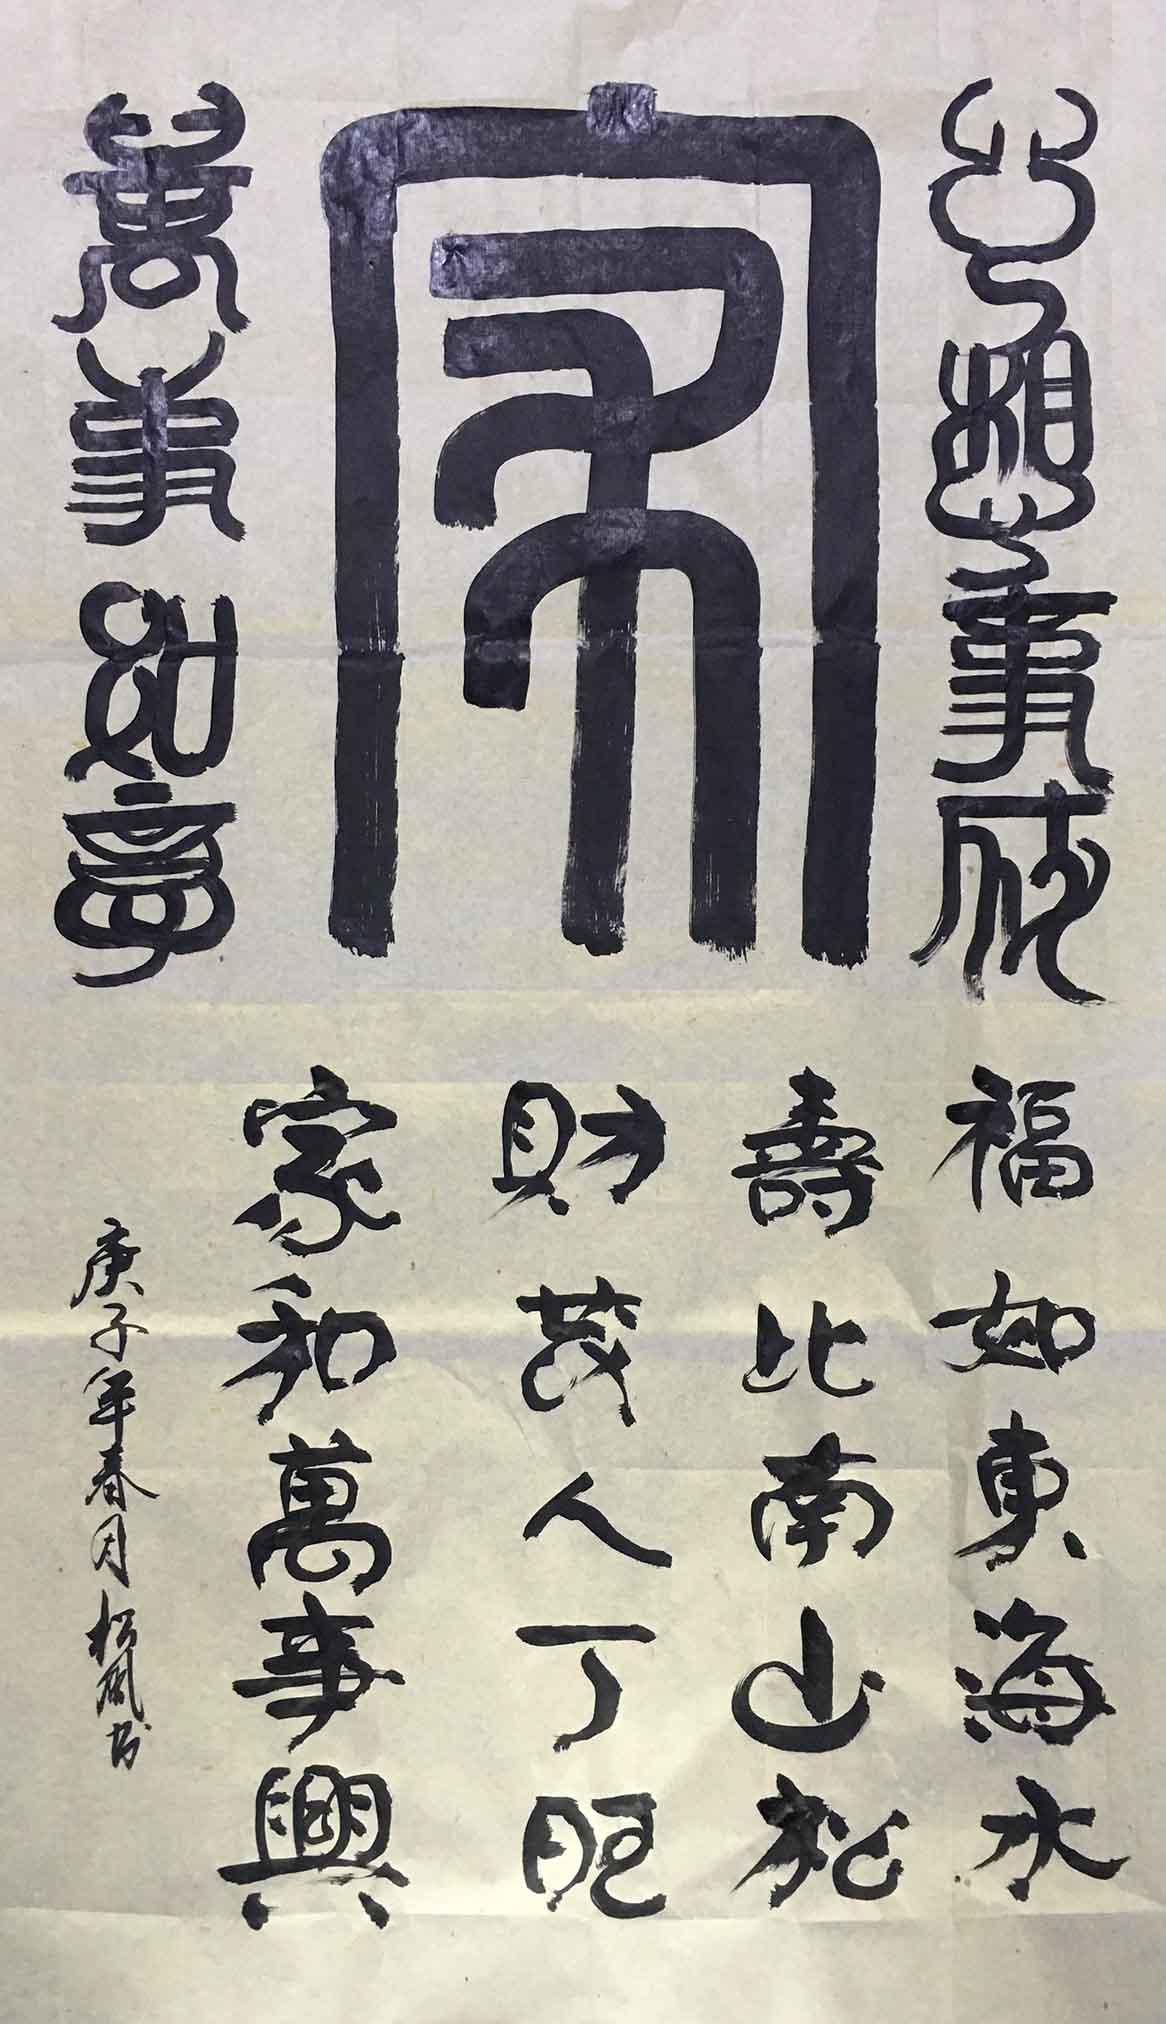 心想事成
家
萬事如意
福如東海水
壽比南山松
財茂人丁旺
家和萬事興
庚子年春月松風书